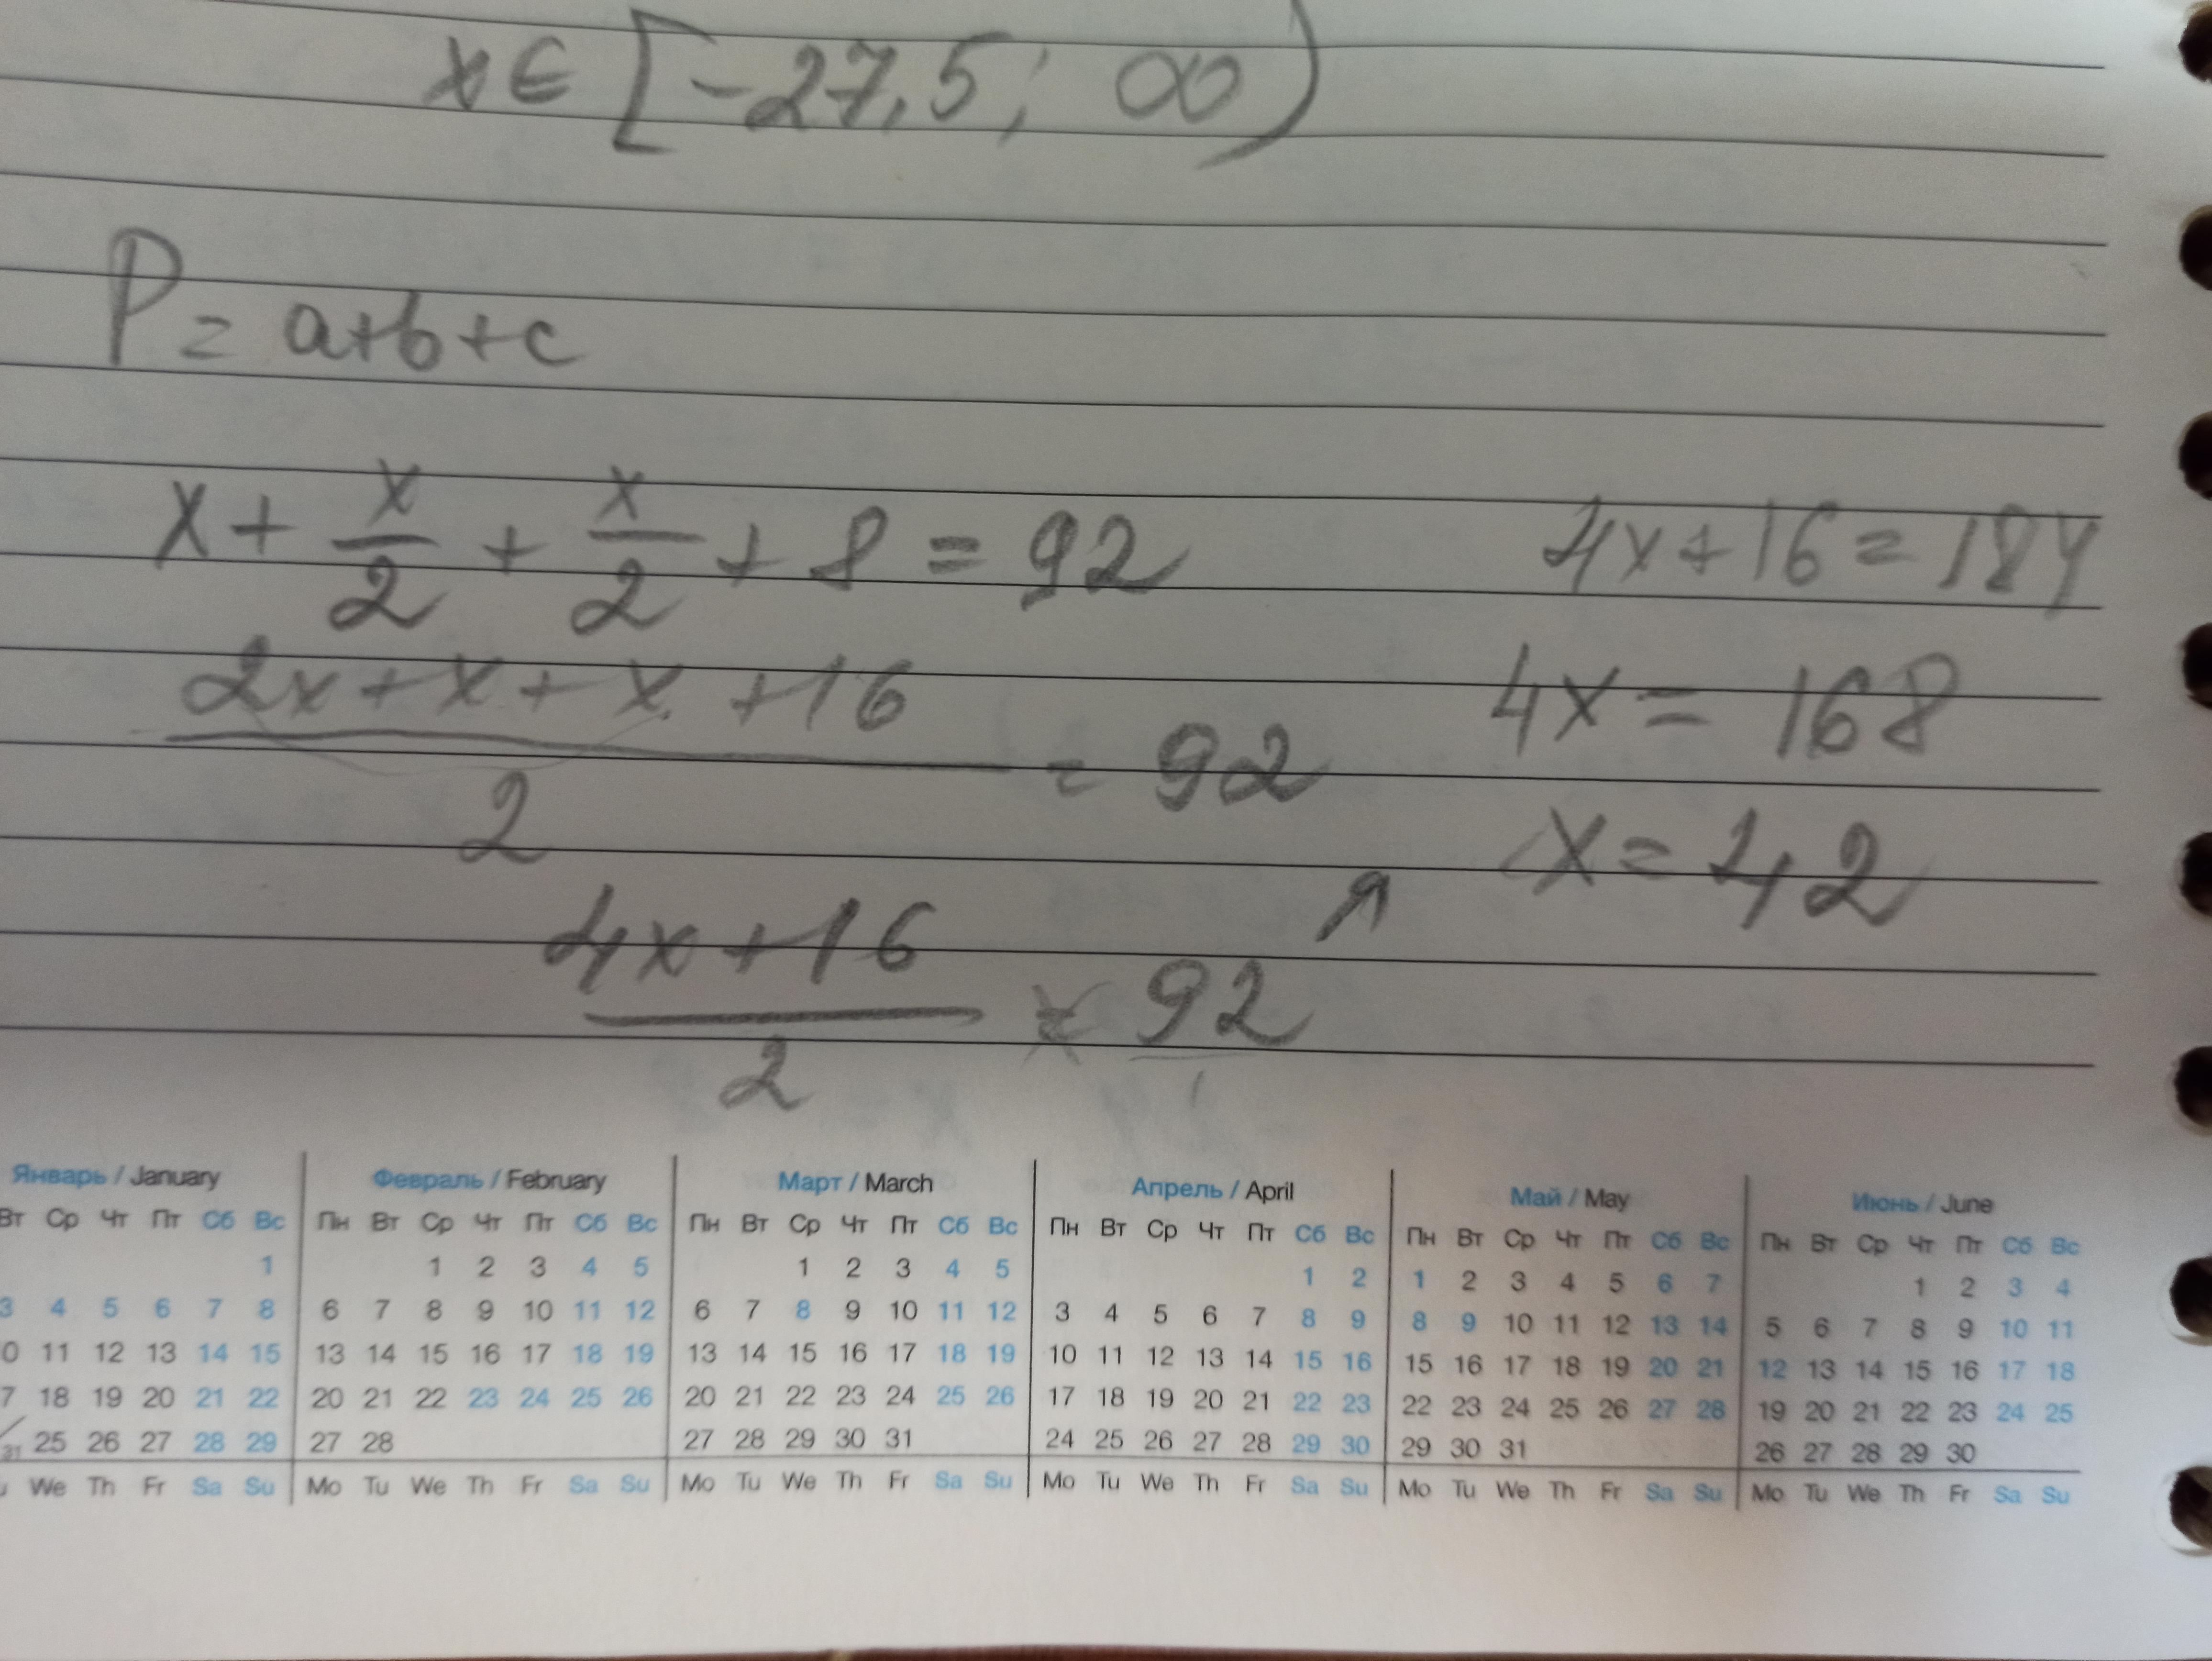 x ∈ [-27,5; ∞)
P = a+b+c
x + x/2 + x/2 + 8 = 92
(2x + x + x + 16)/2 = 92
(4x + 16)/2 = 92/1
4x + 16 = 184
4x = 168
x = 42
Январь / January Февраль / February Март / March Апрель / April Май / May Июнь / June
Вт Ср Чт Пт Сб Вс Пн Вт Ср Чт Пт Сб Вс Пн Вт Ср Чт Пт Сб Вс Пн Вт Ср Чт Пт Сб Вс Пн Вт Ср Чт Пт Сб Вс Пн Вт Ср Чт Пт Сб Вс
1 1 2 3 4 5 1 2 3 4 5 1 2 1 2 3 4 5 6 7 1 2 3 4
3 4 5 6 7 8 6 7 8 9 10 11 12 6 7 8 9 10 11 12 3 4 5 6 7 8 9 8 9 10 11 12 13 14 5 6 7 8 9 10 11
0 11 12 13 14 15 13 14 15 16 17 18 19 13 14 15 16 17 18 19 10 11 12 13 14 15 16 15 16 17 18 19 20 21 12 13 14 15 16 17 18
7 18 19 20 21 22 20 21 22 23 24 25 26 20 21 22 23 24 25 26 17 18 19 20 21 22 23 22 23 24 25 26 27 28 19 20 21 22 23 24 25
31 25 26 27 28 29 27 28 27 28 29 30 31 24 25 26 27 28 29 30 29 30 31 26 27 28 29 30
We Th Fr Sa Su Mo Tu We Th Fr Sa Su Mo Tu We Th Fr Sa Su Mo Tu We Th Fr Sa Su Mo Tu We Th Fr Sa Su Mo Tu We Th Fr Sa Su